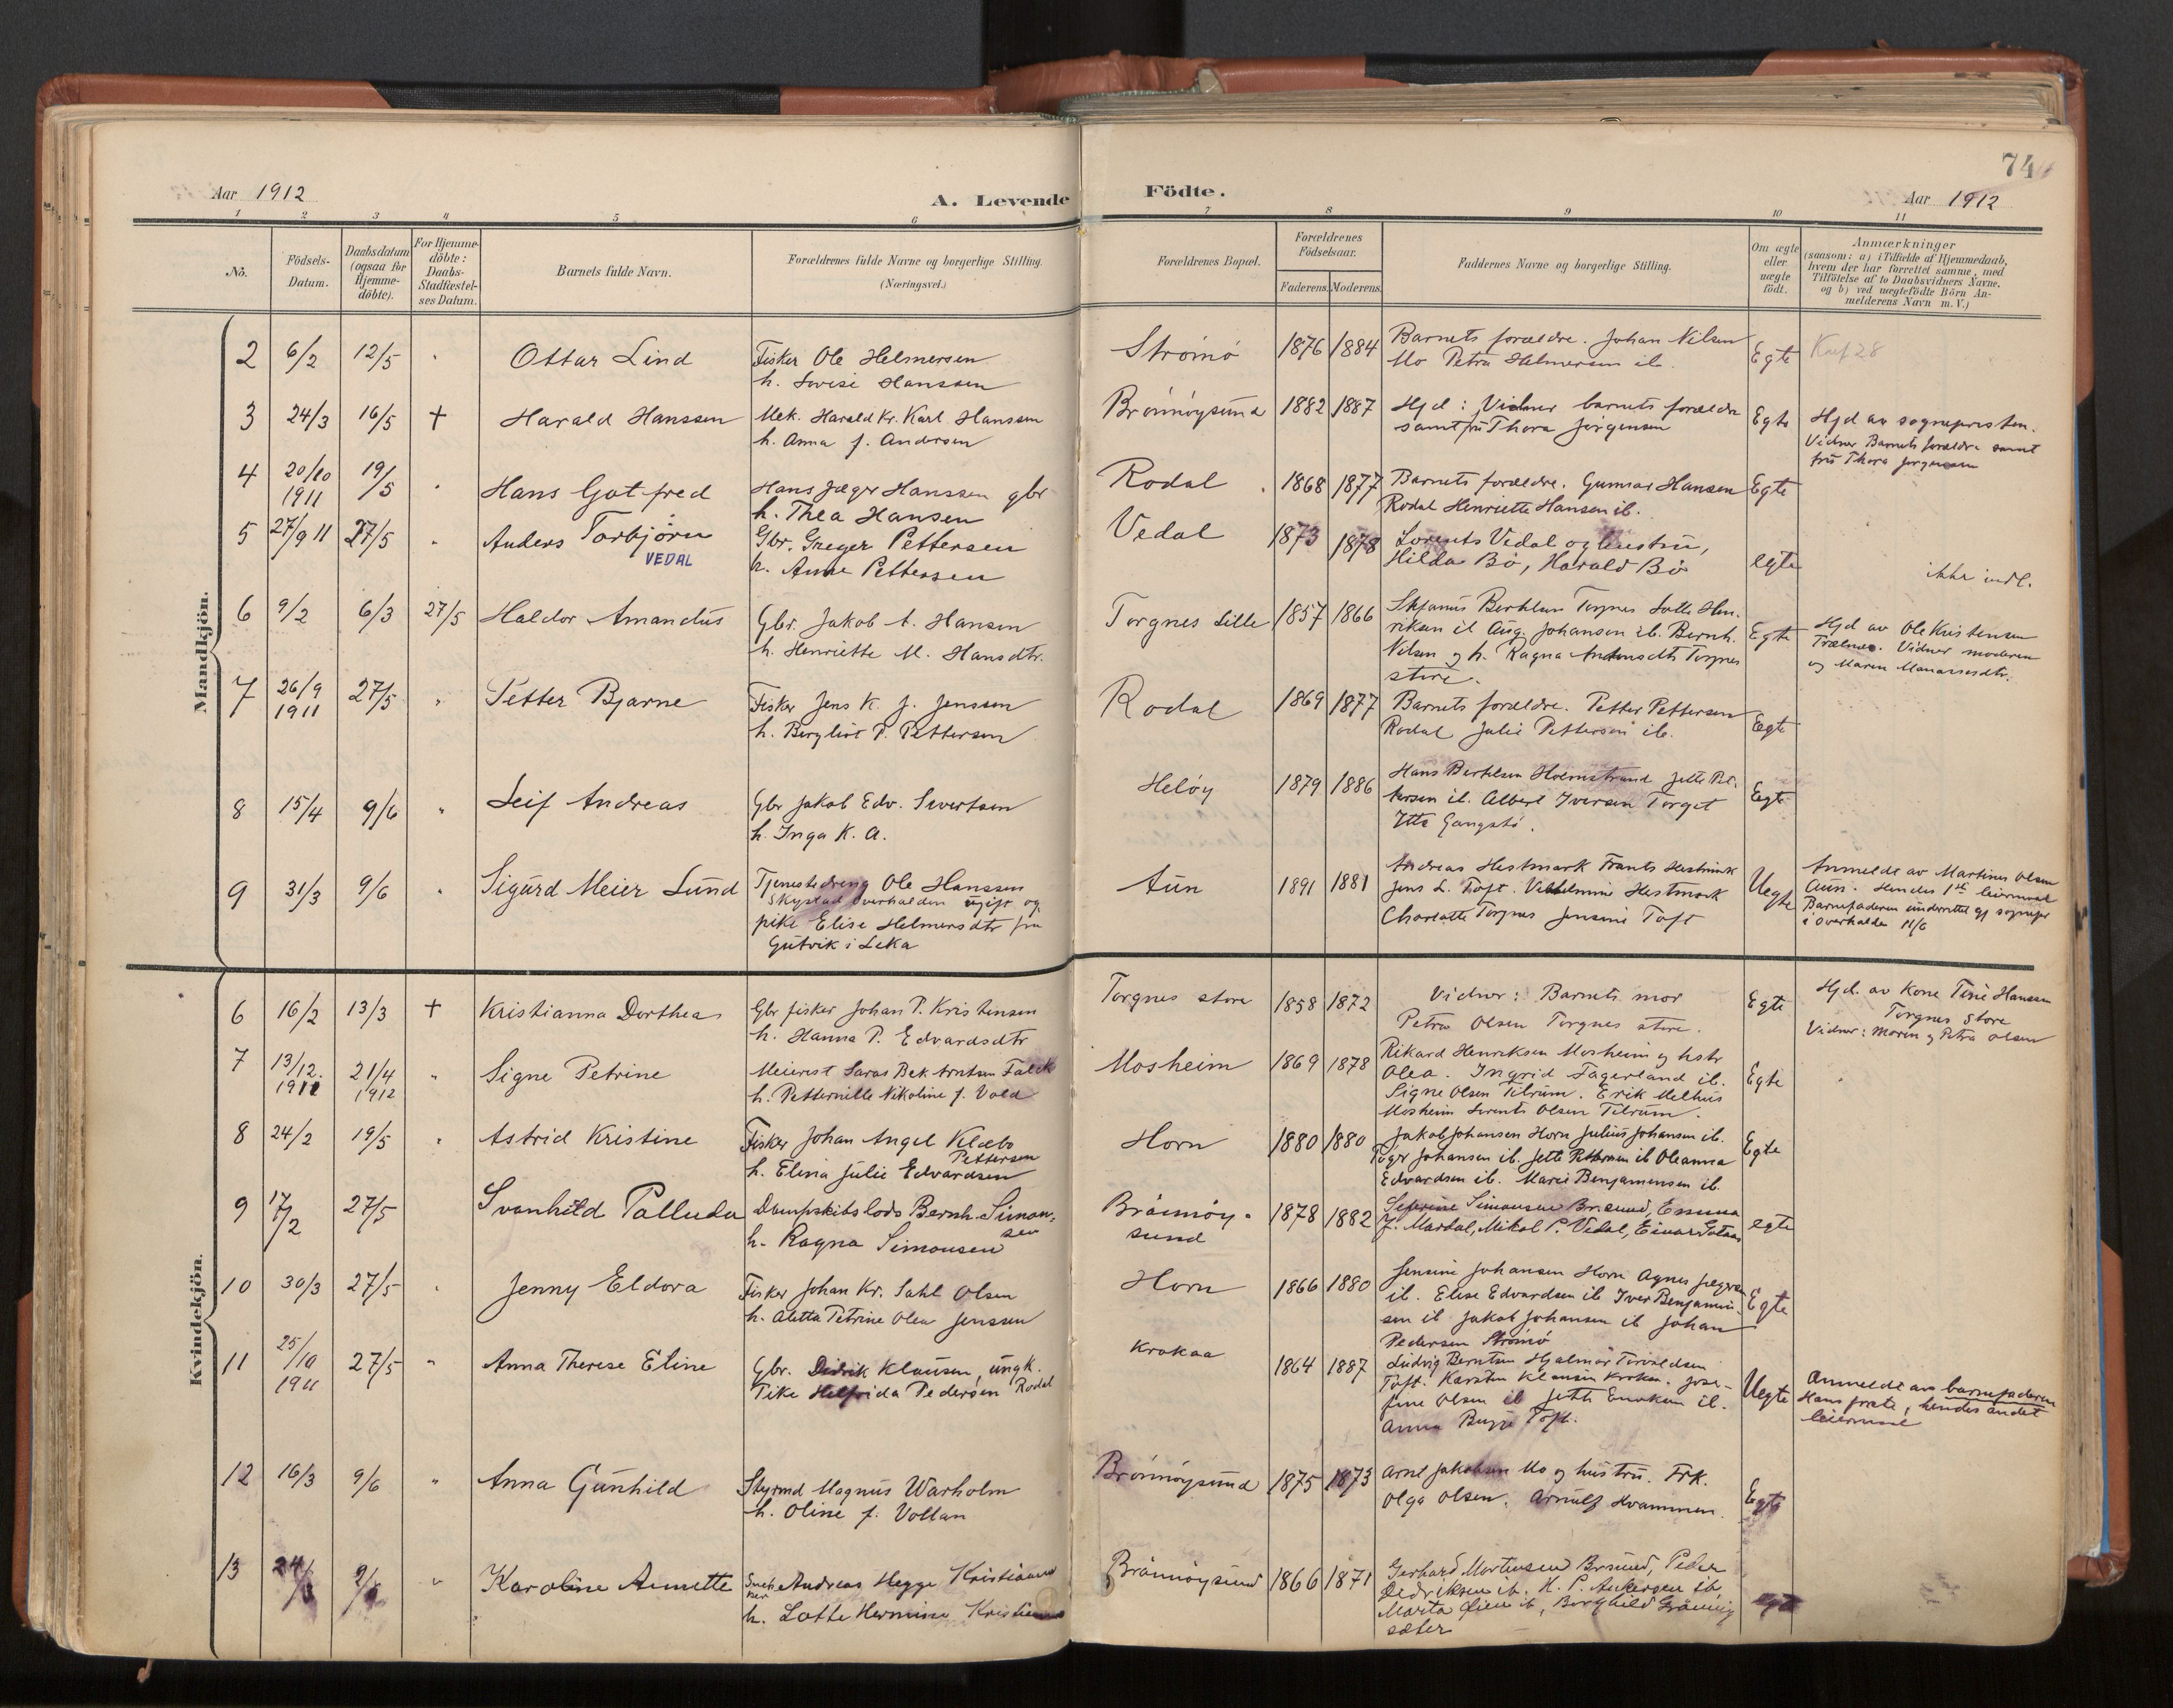 74
Aar 1912
A. Levende Födte.
Aar 1912
1 2 3 4 5 6 7 8 9 10 11
No.
Födsels-
Datum.
Daabsdatum
(ogsaa for
Hjemme-
döbte).
For Hjemme-
döbte:
Daabs-
Stadfæstel-
ses Datum.
Barnets fulde Navn.
Forældrenes fulde Navne og borgerlige Stilling.
(Næringsvei.)
Forældrenes Bopæl.
Forældrenes
Födselsaar.
Faderens. Moderens.
Faddernes Navne og borgerlige Stilling.
Om ægte
eller
uægte
födt.
Anmærkninger
(saasom: a) i Tilfælde af Hjemmedaab,
hvem der har forrettet samme, med
Tilföielse af to Daabsvidners Navne,
og b) ved uægtefödte Börn An-
melderens Navn m. V.)
Mandkjön.
2 6/2 12/5 Ottar Lind
Fisker Ole Helmersen
h. Lovise Hanssen
Strömö 1876 1884
Barnets forældre. Johan Nilsen
Mo Petra Helmersen ib.
Egte
3 24/3 16/5 + Harald Hanssen
Mek. Harald Kr. Karl Hanssen
h. Anna f. Andersen
Brönnöysund 1882 1887
Hjd: Vidner barnets forældre
samt fru Thora Jörgensen
Egte
Hjd av sognepresten.
Vidner Barnets forældre samt
fru Thora Jorgensen
4 20/10 1911 19/5 Hans Gotfred
Hans Jæger Hanssen gbr
h. Thea Hansen
Rodal 1868 1877
Barnets forældre. Gunnar Hansen
Rodal Henriette Hansen ib.
Egte
5 27/9 11 27/5 Anders Torbjörn
VEDAL
Gbr. Greger Pettersen
h. Anne Pettersen
Vedal 1873 1878
Lorents Vedal og hustru,
Hilda Bö, Harald Bö
egte
ikke indl.
6 9/2 6/3 27/5 Haldor Amandus
Gbr. Jakob A. Hansen
h. Henriette M. Hansdtr.
Torgnes Lille 1857 1866
Bertelsen Torgnes Lotte Hen-
riksen ib Aug. Johansen ib. Bernh.
Nilsen og h. Ragna Torgnes
store.
Egte
Hjd av Ole Kristensen
Trælnes. Vidner moderen
og Maren Manassesdtr.
7 26/9 1911 27/5 Petter Bjarne
Fisker Jens K. J. Jenssen
h. Bergliot P. Pettersen
Rodal 1869 1877
Barnets forældre. Petter Pettersen
Rodal Julie Pettersen ib.
Egte
8 15/4 9/6 Leif Andreas
Gbr Jakob Edv. Sivertsen
h. Inga K. A.
Helöy 1879 1886
Hans Bertelsen Holmstrand Jette Pet-
tersen ib. Albert Iversen Torget
Egte
9 31/3 9/6 Sigurd Meier Lund
Tjenestedreng Ole Hanssen
Skystad Overhalden ugift og
pike Elise Helmersdtr fra
Gutvik i Leka
Aun 1891 1881
Andreas Hestmark Frants Hestmark
Jens L. Toft. Vilhelmine Hestmark
Charlotte Torgnes Jensine Toft
Uegte
Anmeldt av Martinus Olsen
Aun. Hendes 1ste leiermaal
Barnefaderen underrettet gj sognepr
i Overhalden 11/6
Kvindekjön.
6 16/2 13/3 + Kristianna Dorthea
Gbr fisker Johan P. Kristensen
h. Hanna P. Edvardsdtr
Torgnes store 1858 1872
Vidner: Barnets mor
Petra Olsen Torgnes store.
Egte
Hjd. av Kone Tine Hanssen
Torgnes Store
Vidner: Moren og Petra Olsen
7 13/12. 1911 21/4 1912 Signe Petrine
Meierest Saras Bek Arntsen Falck
h. Petternille Nikoline f. Vold
Mosheim 1869 1878
Rikard Henriksen Mosheim og hstr
Olea. Ingrid Fagerland ib.
Signe Olsen Tilrum. Erik Melhus
Mosheim Lorents Olsen Tilrum.
Egte
8 24/2 19/5 Astrid Kristine
Fisker Johan Angel Klæbo
Pettersen
h. Elina Julie Edvardsen
Horn 1880 1880
Jakob Johansen Horn Julius Johansen ib.
Roger Johansen ib. Jette Pettersen ib Oleanna
Edvardsen ib. Marie Benjaminsen ib.
Egte
9 17/2 27/5 Svanhild Palluda
Dampskibslods Bernh. Simon-
sen
h. Ragna Simonsen
Brönnöy-
sund
1878 1882
Severine Simonsen Br.sund, Emma
J. Mardal, Mikal P. Vedal, Einar
egte
10 30/3 27/5 Jenny Eldora
Fisker Johan Kr. Sahl Olsen
h. Aletta Petrine Olea Jenssen
Horn 1866 1880
Jensine Johansen Horn Agnes
ib. Elise Edvardsen ib Iver Benjamin-
sen ib Jakob Johansen ib Johan
Pedersen Strömö
Egte
11 25/10 1911 27/5 Anna Therese Eline
Gbr. Didrik Klausen, ungk.
Pike Helfrida Pedersen Rodal
Krokaa 1864 1887
Ludvig Berntsen Hjalmar Torvaldsen
Toft. Karsten Klausen Krokaa. Jose-
fine Olsen ib Jette Enoksen ib.
Anna Bugge Toft.
Uegte
Anmeldt av barnefaderen
Hans første, hendes andet
leiermaal
12 16/3 9/6 Anna Gunhild
Styrmd Magnus Warholm
h. Oline f. Vollan
Brönnöysund 1875 1873
Arnt Jakobsen Mo og hustru. Frk.
Olga Olsen. Arnulf Kvammen.
Egte
13 Karoline Annette
Snek
ker
Andreas Hegge Kristiansen
h. Lotte Hermine Kristiansen
Brönnöysund 1866 1871
Gerhard Mortensen Br.sund, Peder
Dedriksen ib. H. P. Ankersen ib,
Marta ib, Borghild Gröning-
sæter
egte